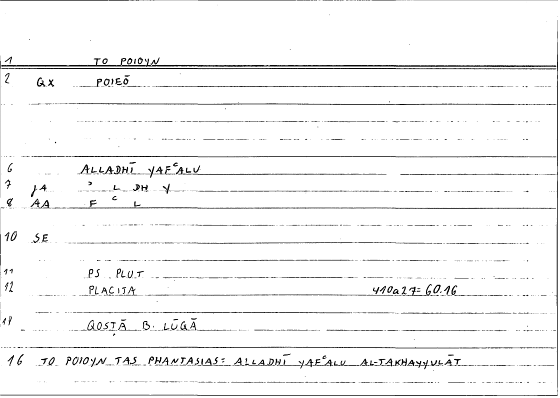 1 TO POIOYN
2 QX POIEŌ
6 ALLADHĪ YAFᶜALU
7 JA ᵓ L DH Y
8 AA F ᶜ L
10 SE
11 PS PLUT
12 PLACITA 410a27=60.16
14 QOSṬĀ B. LŪQĀ
16 TO POIOYN TAS PHANTASIAS= ALLADHĪ YAFᶜALU AL-TAKHAYYULĀT